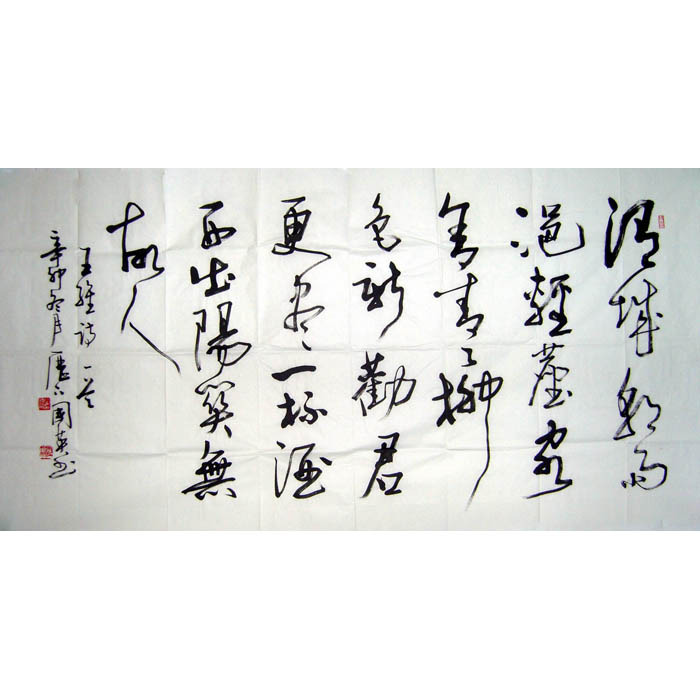 渭城朝雨
浥輕塵客
舍青青柳
色新勸君
更尽一杯酒
西出陽關無
故人
王維詩一首
辛卯冬月歷下國英书